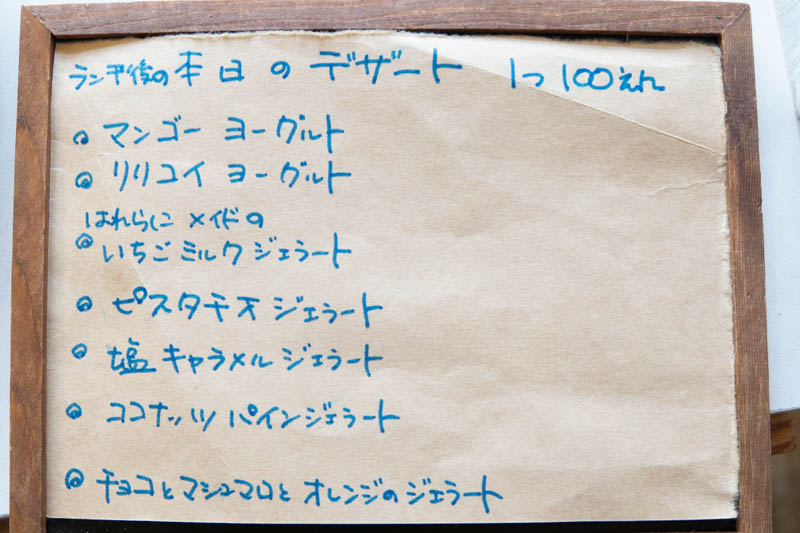 ランチ後の本日のデザート 1つ100えん
マンゴーヨーグルト
リリコイヨーグルト
はれらにメイドの
いちごミルクジェラート
ピスタチオジェラート
塩キャラメルジェラート
ココナッツパインジェラート
チョコとマシュマロとオレンジのジェラート